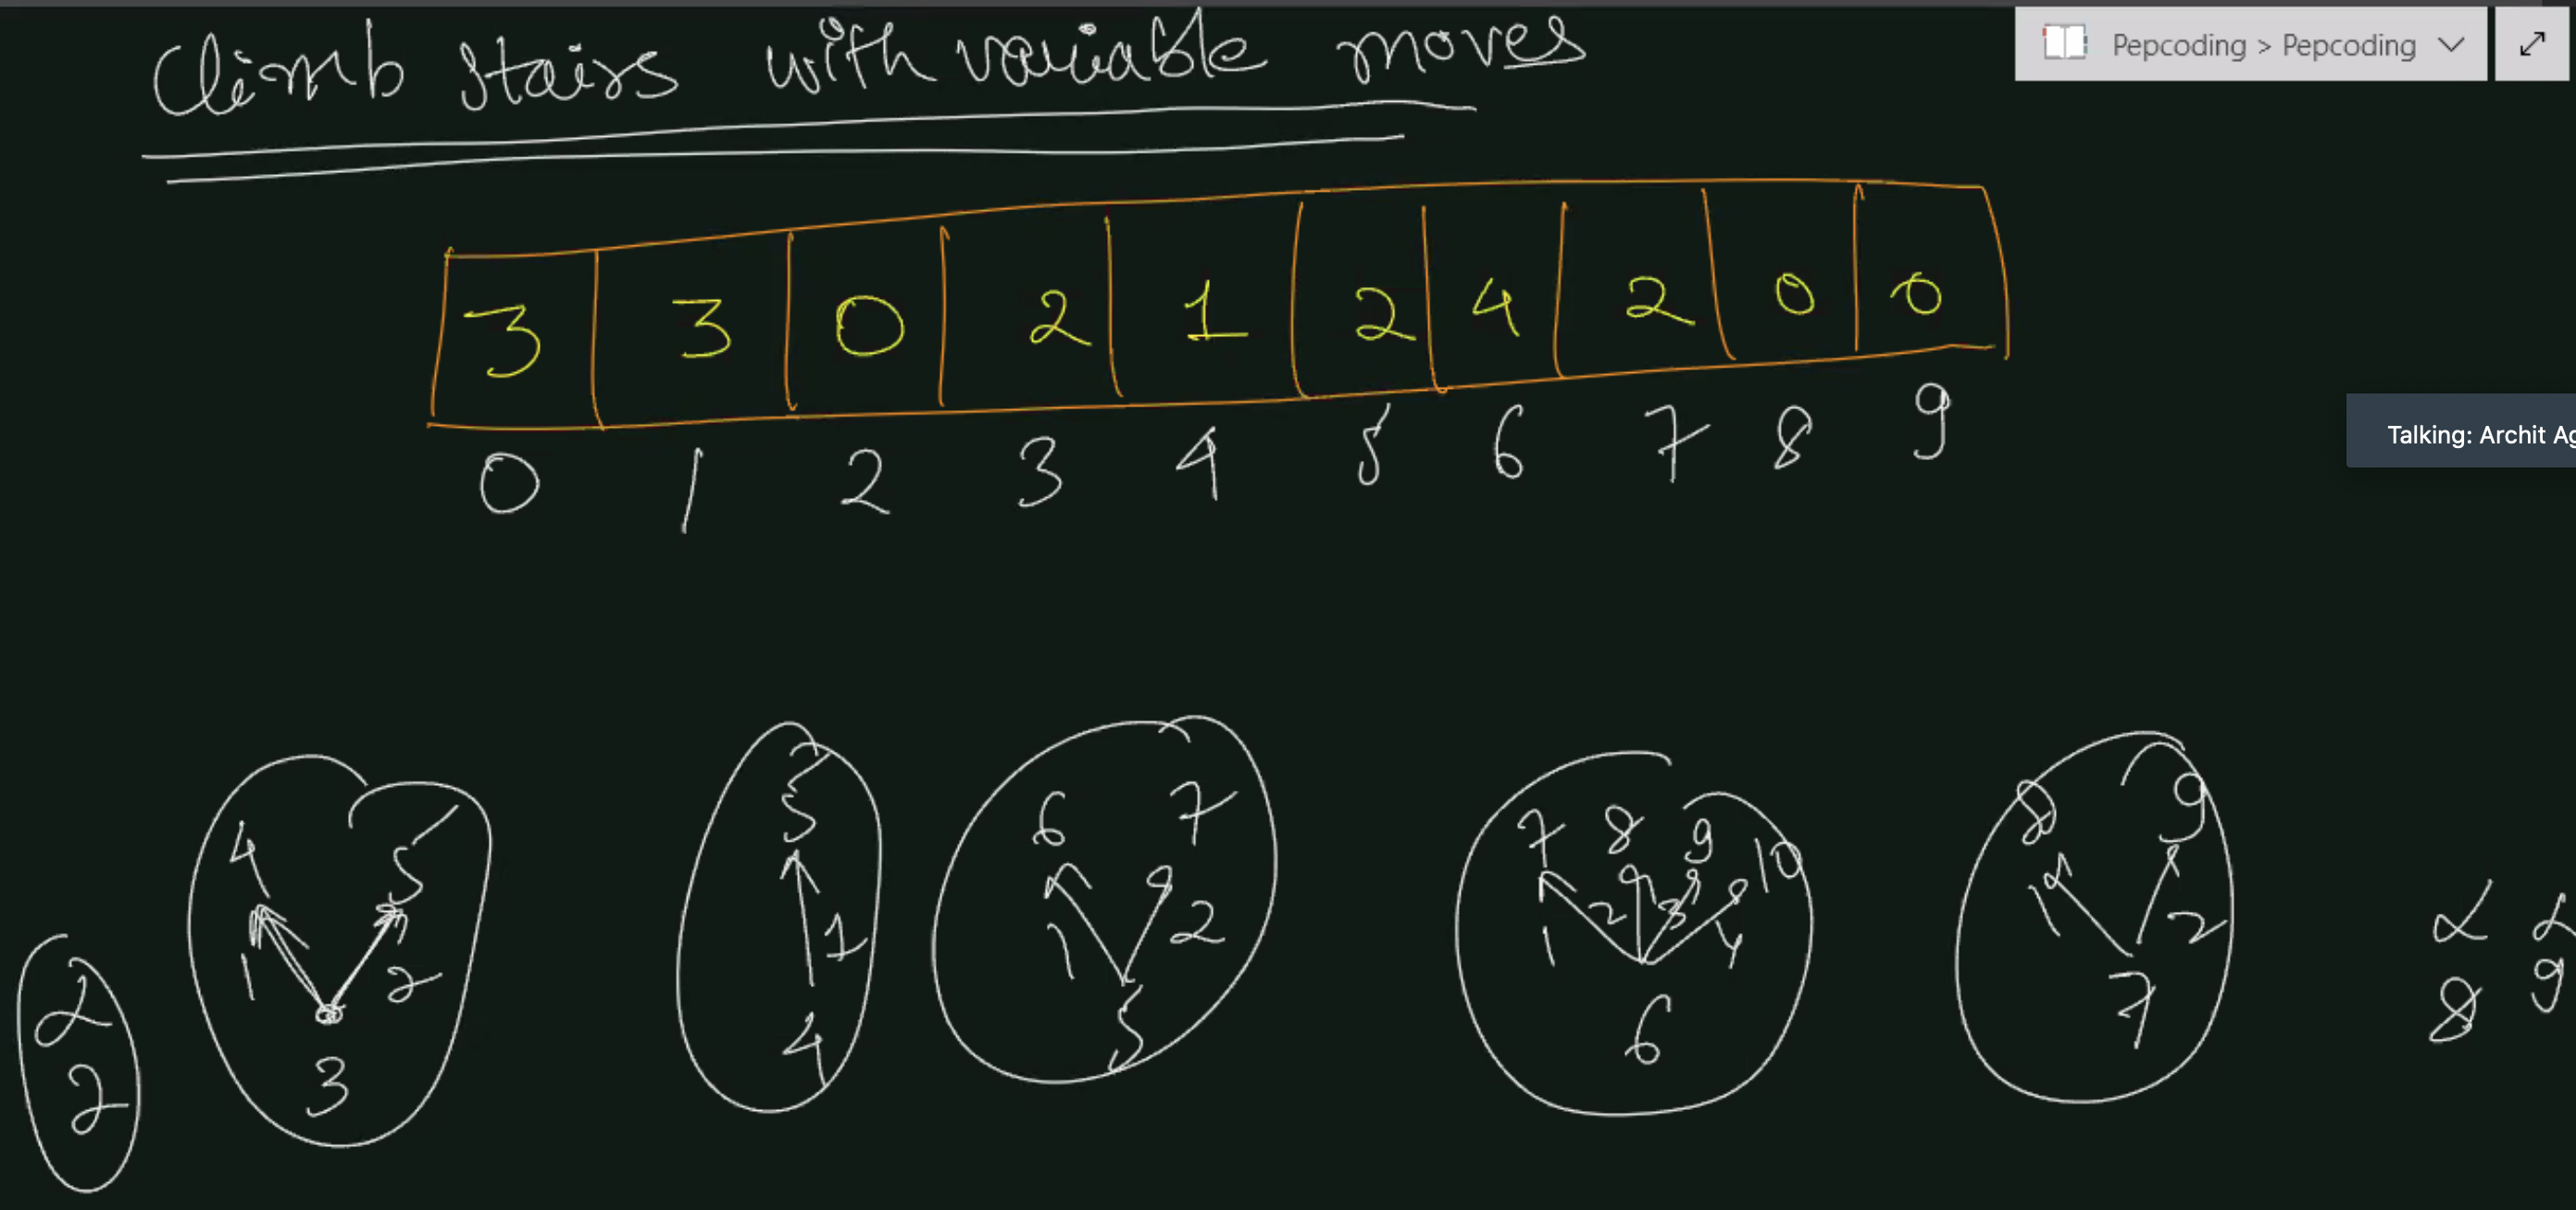 Climb stairs with variable moves
Pepcoding > Pepcoding
3 3 0 2 1 2 4 2 0 0
0 1 2 3 4 5 6 7 8 9
Talking: Archit Ag
4 5
1 2
3
5
1
4
6 7
1 2
5
7 8 9 10
1 2 3 4
6
8 9
1 2
7
8 9
2